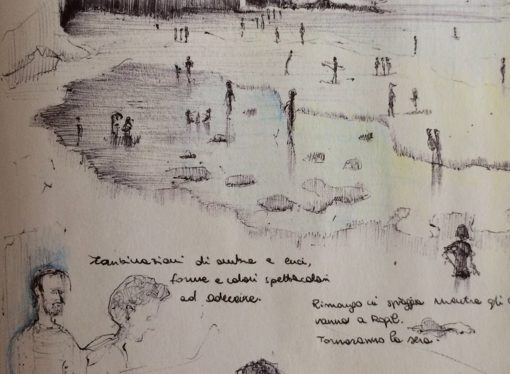 Combinazioni di ombra e luci,
forme e colori spettacolari
ad
Rimango in spiaggia mentre gli
vanno a
Torneranno la sera.